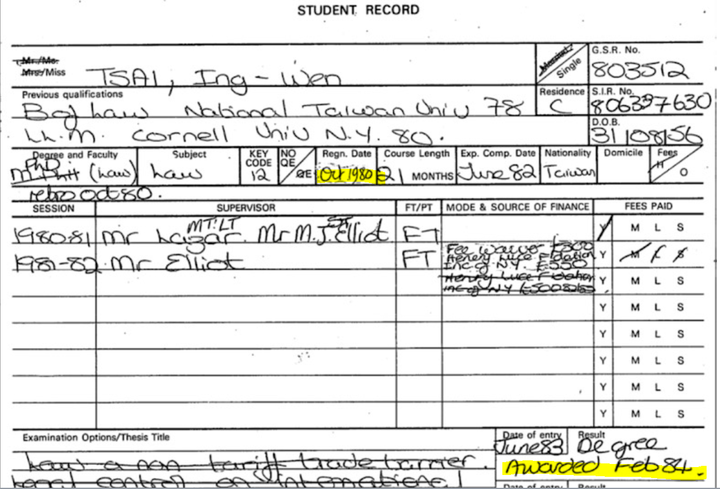 STUDENT RECORD
Mr./Ms. Mrs/Miss TSAI, Ing-Wen
Married/Single
G.S.R. No. 803512
Previous qualifications
B of Law National Taiwan Univ 78
LL.M. Cornell Univ N.Y. 80.
Residence C
S.I.R. No. 806337630
D.O.B. 31/08/56
Degree and Faculty Subject KEY CODE NO QE/QE Regn. Date Course Length Exp. Comp. Date Nationality Domicile Fees
PhD (Law) Law 12 Oct 1980 21 MONTHS June 82 Taiwan H/O
SESSION SUPERVISOR FT/PT MODE & SOURCE OF FINANCE FEES PAID
MT:LT
1980-81 Mr Lazar. Mr M.J. Elliot FT Y M L S
1981-82 Mr Elliot FT Fee Waiver £300 Y M L S
Henry Luce
Inc of N.Y. £550
Henry Luce
Inc of NY
Y M L S
Y M L S
Y M L S
Y M L S
Y M L S
Y M L S
Examination Options/Thesis Title
Date of entry June 83
Result Degree
Awarded Feb 84.
Law & non tariff trade barrier.
Legal control on International
Date of entry Result